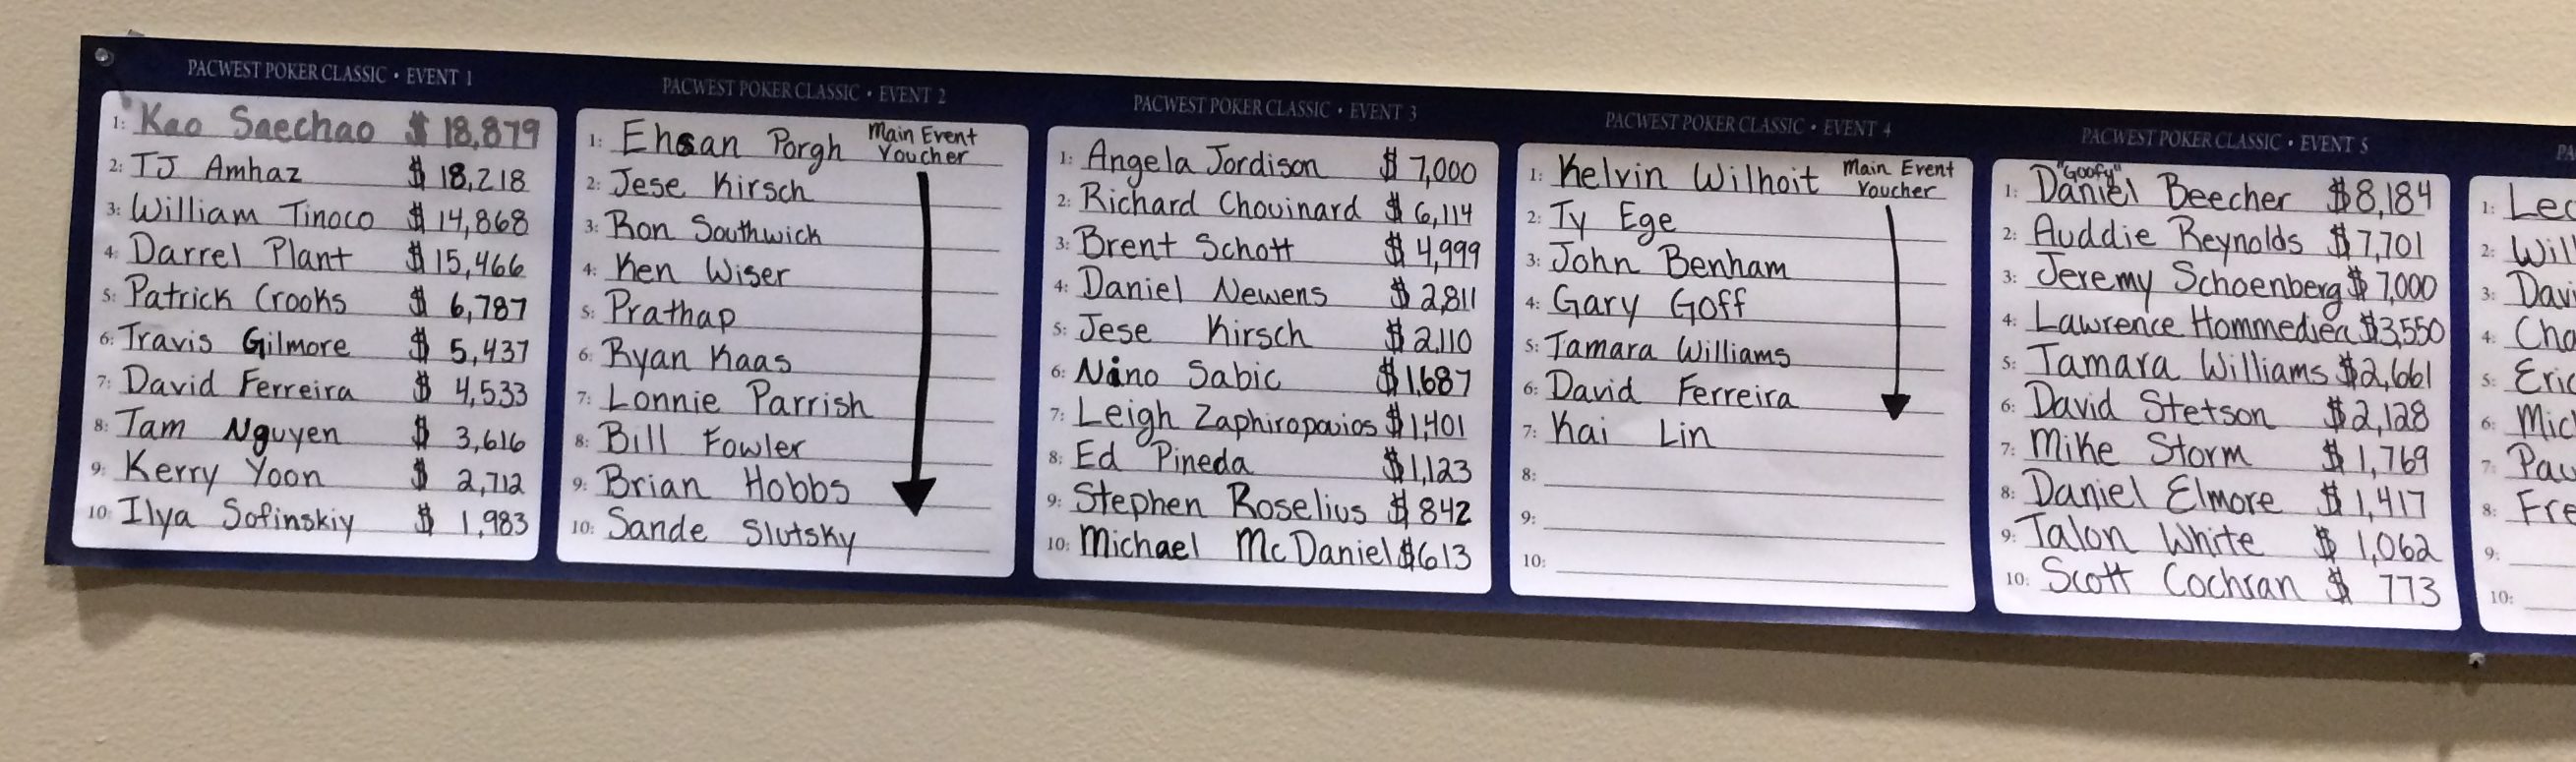 PACWEST POKER CLASSIC • EVENT 1
1: Kao Saechao $ 18,879
2: TJ Amhaz $ 18,218
3: William Tinoco $ 14,868
4: Darrel Plant $ 15,466
5: Patrick Crooks $ 6,787
6: Travis Gilmore $ 5,437
7: David Ferreira $ 4,533
8: Tam Nguyen $ 3,616
9: Kerry Yoon $ 2,712
10: Ilya Sofinskiy $ 1,983
PACWEST POKER CLASSIC • EVENT 2
1: Ehsan Porgh Main Event
Voucher
2: Jese Kirsch
3: Ron Southwick
4: Ken Wiser
5: Prathap
6: Ryan Kaas
7: Lonnie Parrish
8: Bill Fowler
9: Brian Hobbs
10: Sande Slutsky
PACWEST POKER CLASSIC • EVENT 3
1: Angela Jordison $ 7,000
2: Richard Chouinard $ 6,114
3: Brent Schott $ 4,999
4: Daniel Newens $ 2,811
5: Jese Kirsch $ 2,110
6: Nino Sabic $1,687
7: Leigh Zaphiropoulos $1,401
8: Ed Pineda $1,123
9: Stephen Roselius $ 842
10: Michael McDaniel $613
PACWEST POKER CLASSIC • EVENT 4
1: Kelvin Wilhoit Main Event
Voucher
2: Ty Ege
3: John Benham
4: Gary Goff
5: Tamara Williams
6: David Ferreira
7: Kai Lin
8:
9:
10:
PACWEST POKER CLASSIC • EVENT 5
"Goofy"
1: Daniel Beecher $8,184
2: Auddie Reynolds $7,701
3: Jeremy Schoenberg $ 7,000
4: Lawrence Hommedieu $3,550
5: Tamara Williams $2,661
6: David Stetson $2,128
7: Mike Storm $ 1,769
8: Daniel Elmore $ 1,417
9: Talon White $ 1,062
10: Scott Cochran $ 773
PA
1: Leo
2: Will
3: Davi
4: Cha
5: Eric
6: Mic
7: Pau
8: Fre
9:
10: